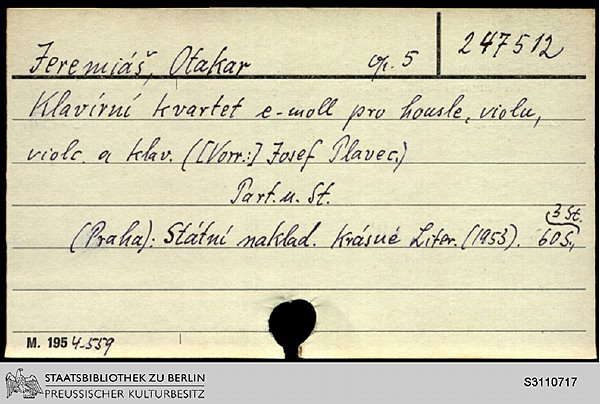 Jeremiáš, Otakar op. 5 247512
Klavírní kvartet e-moll pro housle, violu,
violc. a klav. ([Vorr.:] Josef Plavec.)
Part. u. St.
3 St.
(Praha): Státní naklad. Krásné Liter. (1953). 60 S.,
M. 1954-559
STAATSBIBLIOTHEK ZU BERLIN
PREUSSISCHER KULTURBESITZ
S3110717